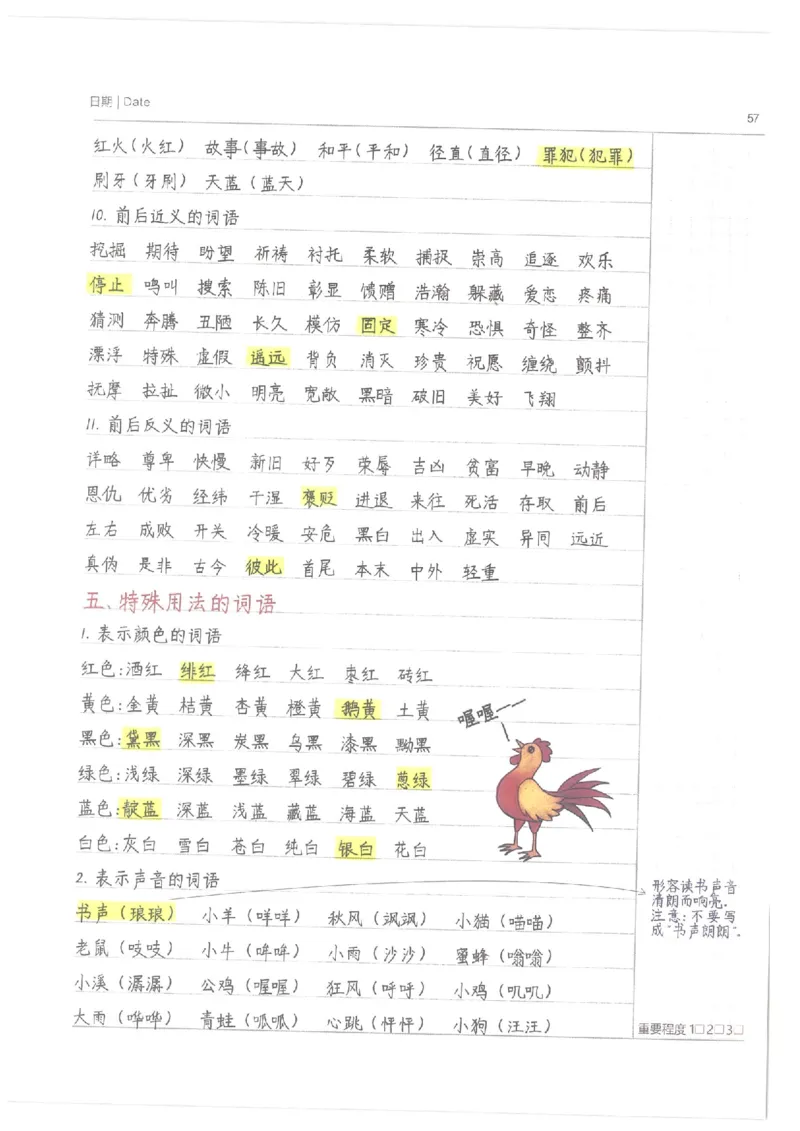 日期 | Date
57
红火(火红) 故事(事故) 和平(平和) 径直(直径) 罪犯(犯罪)
刷牙(牙刷) 天蓝(蓝天)
10. 前后近义的词语
挖掘 期待 盼望 祈祷 衬托 柔软 捕捉 崇高 追逐 欢乐
停止 鸣叫 搜索 陈旧 彰显 馈赠 浩瀚 躲藏 爱恋 疼痛
猜测 奔腾 丑陋 长久 模仿 固定 寒冷 恐惧 奇怪 整齐
漂浮 特殊 虚假 遥远 背负 消灭 珍贵 祝愿 缠绕 颤抖
抚摩 拉扯 微小 明亮 宽敞 黑暗 破旧 美好 飞翔
11. 前后反义的词语
详略 尊卑 快慢 新旧 好歹 荣辱 吉凶 贫富 早晚 动静
恩仇 优劣 经纬 干湿 褒贬 进退 来往 死活 存取 前后
左右 成败 开关 冷暖 安危 黑白 出入 虚实 异同 远近
真伪 是非 古今 彼此 首尾 本末 中外 轻重
五、特殊用法的词语
1. 表示颜色的词语
红色:酒红 绯红 绛红 大红 枣红 砖红
黄色:金黄 桔黄 杏黄 橙黄 鹅黄 土黄
喔喔——
黑色:黛黑 深黑 炭黑 乌黑 漆黑 黝黑
绿色:浅绿 深绿 墨绿 翠绿 碧绿 葱绿
蓝色:靛蓝 深蓝 浅蓝 藏蓝 海蓝 天蓝
白色:灰白 雪白 苍白 纯白 银白 花白
2. 表示声音的词语
书声(琅琅) 小羊(咩咩) 秋风(飒飒) 小猫(喵喵)
老鼠(吱吱) 小牛(哞哞) 小雨(沙沙) 蜜蜂(嗡嗡)
小溪(潺潺) 公鸡(喔喔) 狂风(呼呼) 小鸡(叽叽)
大雨(哗哗) 青蛙(呱呱) 心跳(怦怦) 小狗(汪汪)
形容读书声音
清朗而响亮。
注意:不要写
成“书声朗朗”。
重要程度 1□2□3□